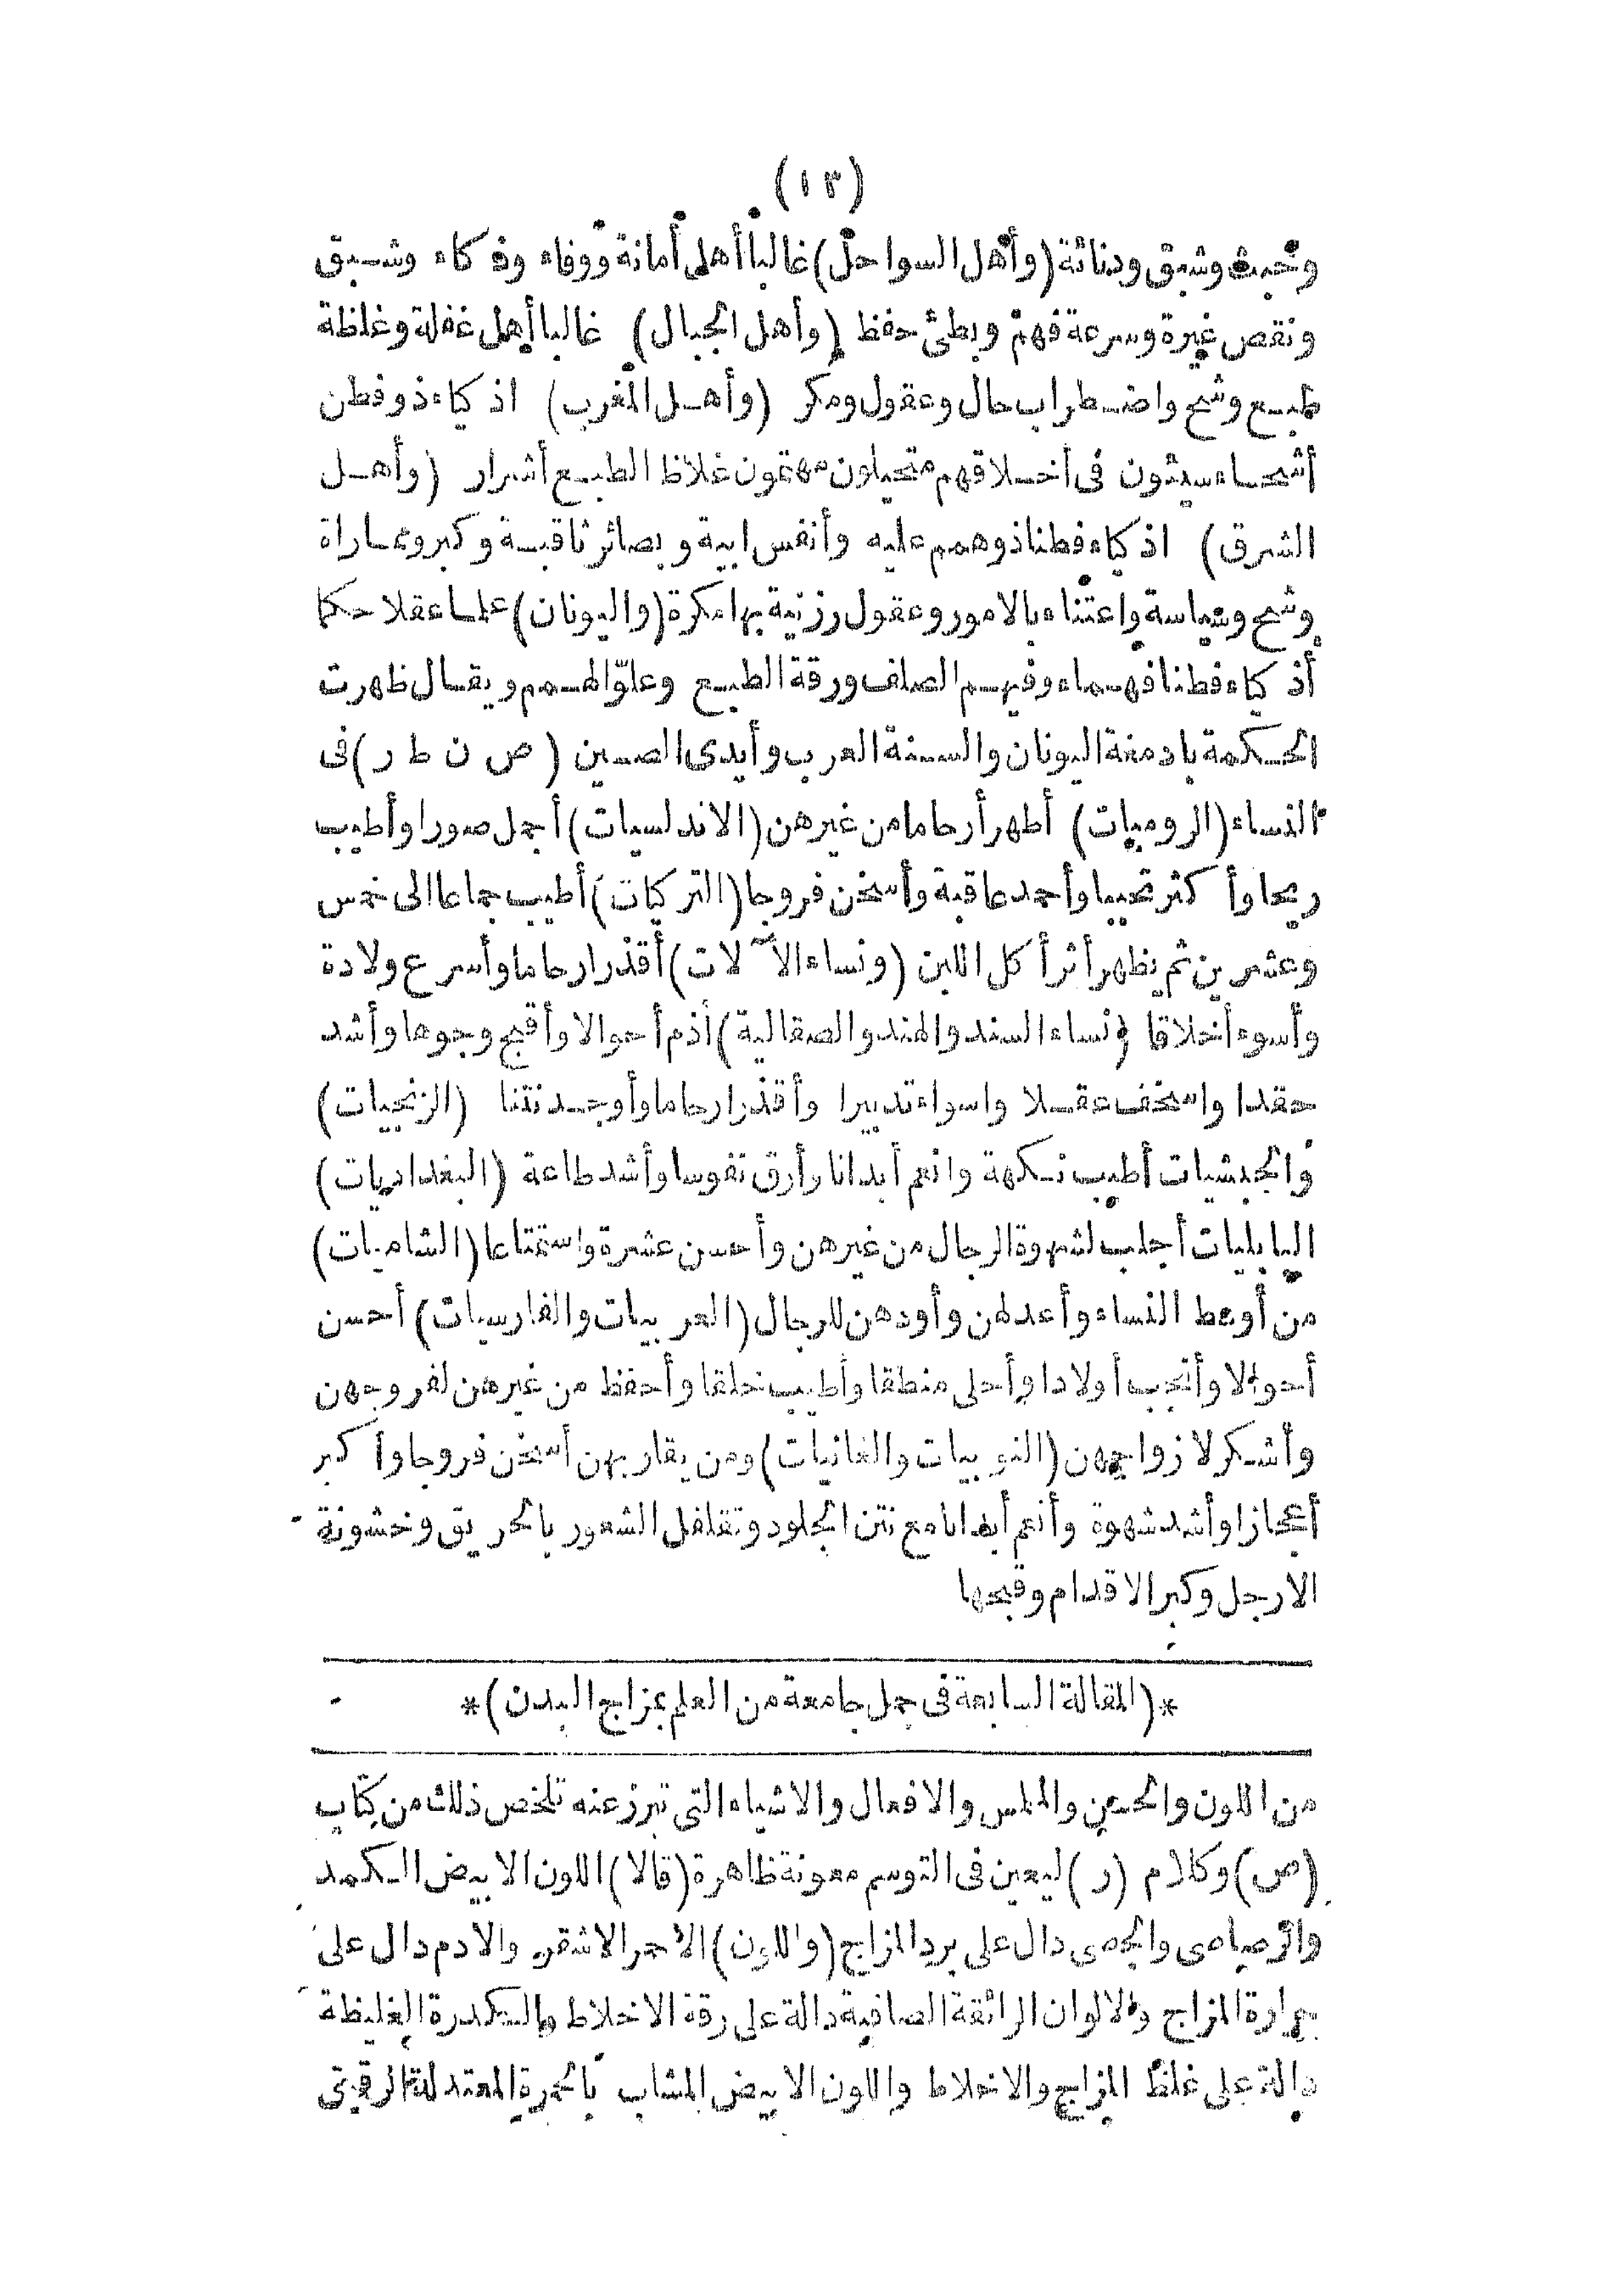 (١٣)
وخبث وشبق ودنائة (وأهل السواحل) غالبا أهل أمانة ووفاء وذكاء وشبق
ونقص غيرة وسرعة فهم وبطئ حفظ (وأهل الجبال) غالبا أهل غفلة وغلظة
طبع وشح واضطراب حال وعقول ومكر (وأهل المغرب) اذكياء ذو فطن
أشحاء سيئون فى أخلاقهم متحيلون مهتمون غلاظ الطبع أشرار (وأهل
الشرق) اذكياء فطنا ذو همم عليه وأنفس ابية وبصائر ثاقبة وكبر ومماراة
وشح وسياسة واعتناء بالامور وعقول رزنية بها مكرة (واليونان) علما عقلا حكما
أذكياء فطنا فهماء وفيهم الصلف ورقة الطبع وعلوّ الهمم ويقال ظهرت
الحكمة بادمغة اليونان والسنة العرب وأيدى الصين (ص ن ط ر) فى
النساء (الروميات) أطهر أرحاما من غيرهن (الاندلسيات) أجمل صورا وأطيب
ريحا وأكثر تحببا وأحمد عاقبة وأسخن فروجا (التركيات) أطيب جماعا الى خمس
وعشرين ثم يظهر أثر أكل اللبن (ونساء الآلات) أقذر ارحاما وأسرع ولادة
وأسوء أخلاقا (ونساء السند والهند والصقالية) أذم أحوالا وأقبح وجوها وأشد
حقدا واسخف عقلا واسواء تدبيرا وأقذر ارحاما وأوجد نتنا (الزنجيات)
والحبشيات أطيب نكهة وانعم أبدانا وأرق نفوسا وأشد طاعة (البغداديات)
البابليات أجلب لشهوة الرجال من غيرهن وأحسن عشرة واستمتاعا (الشاميات)
من أوسط النساء وأعدلهن وأودهن للرجال (العربيات والفارسيات) أحسن
أحوالا وأنجب أولادا وأحلى منطقا وأطيب خلقا وأحفظ من غيرهن لفروجهن
وأشكر لازواجهن (النوبيات والغانيات) ومن يقاربهن أسخن فروجا وأكبر
أعجازا وأشد شهوة وأنعم أبدانا مع نتن الجلود وتفلفل الشعور بالحريق وخشونة
الارجل وكبر الاقدام وقبحها
*(المقالة السابعة فى جمل جامعة من العلم بمزاج البدن)*
من اللون والحسن والملمس والافعال والاشياء التى تبرز عنه تلخص ذلك من كتاب
(ص) وكلام (ر) ليعين فى التوسم معونة ظاهرة (قالا) اللون الابيض الكمد
والرصاصى والجصى دال على برد المزاج (واللون) الاحمر الاشقر والادم دال على
حرارة المزاج والالوان الرائقة الصافية دالة على رقة الاخلاط والكدرة الغليظة
دالة على غلظ المزاج والاخلاط واللون الابيض المشاب بالحمرة المعتدلة الرقيق